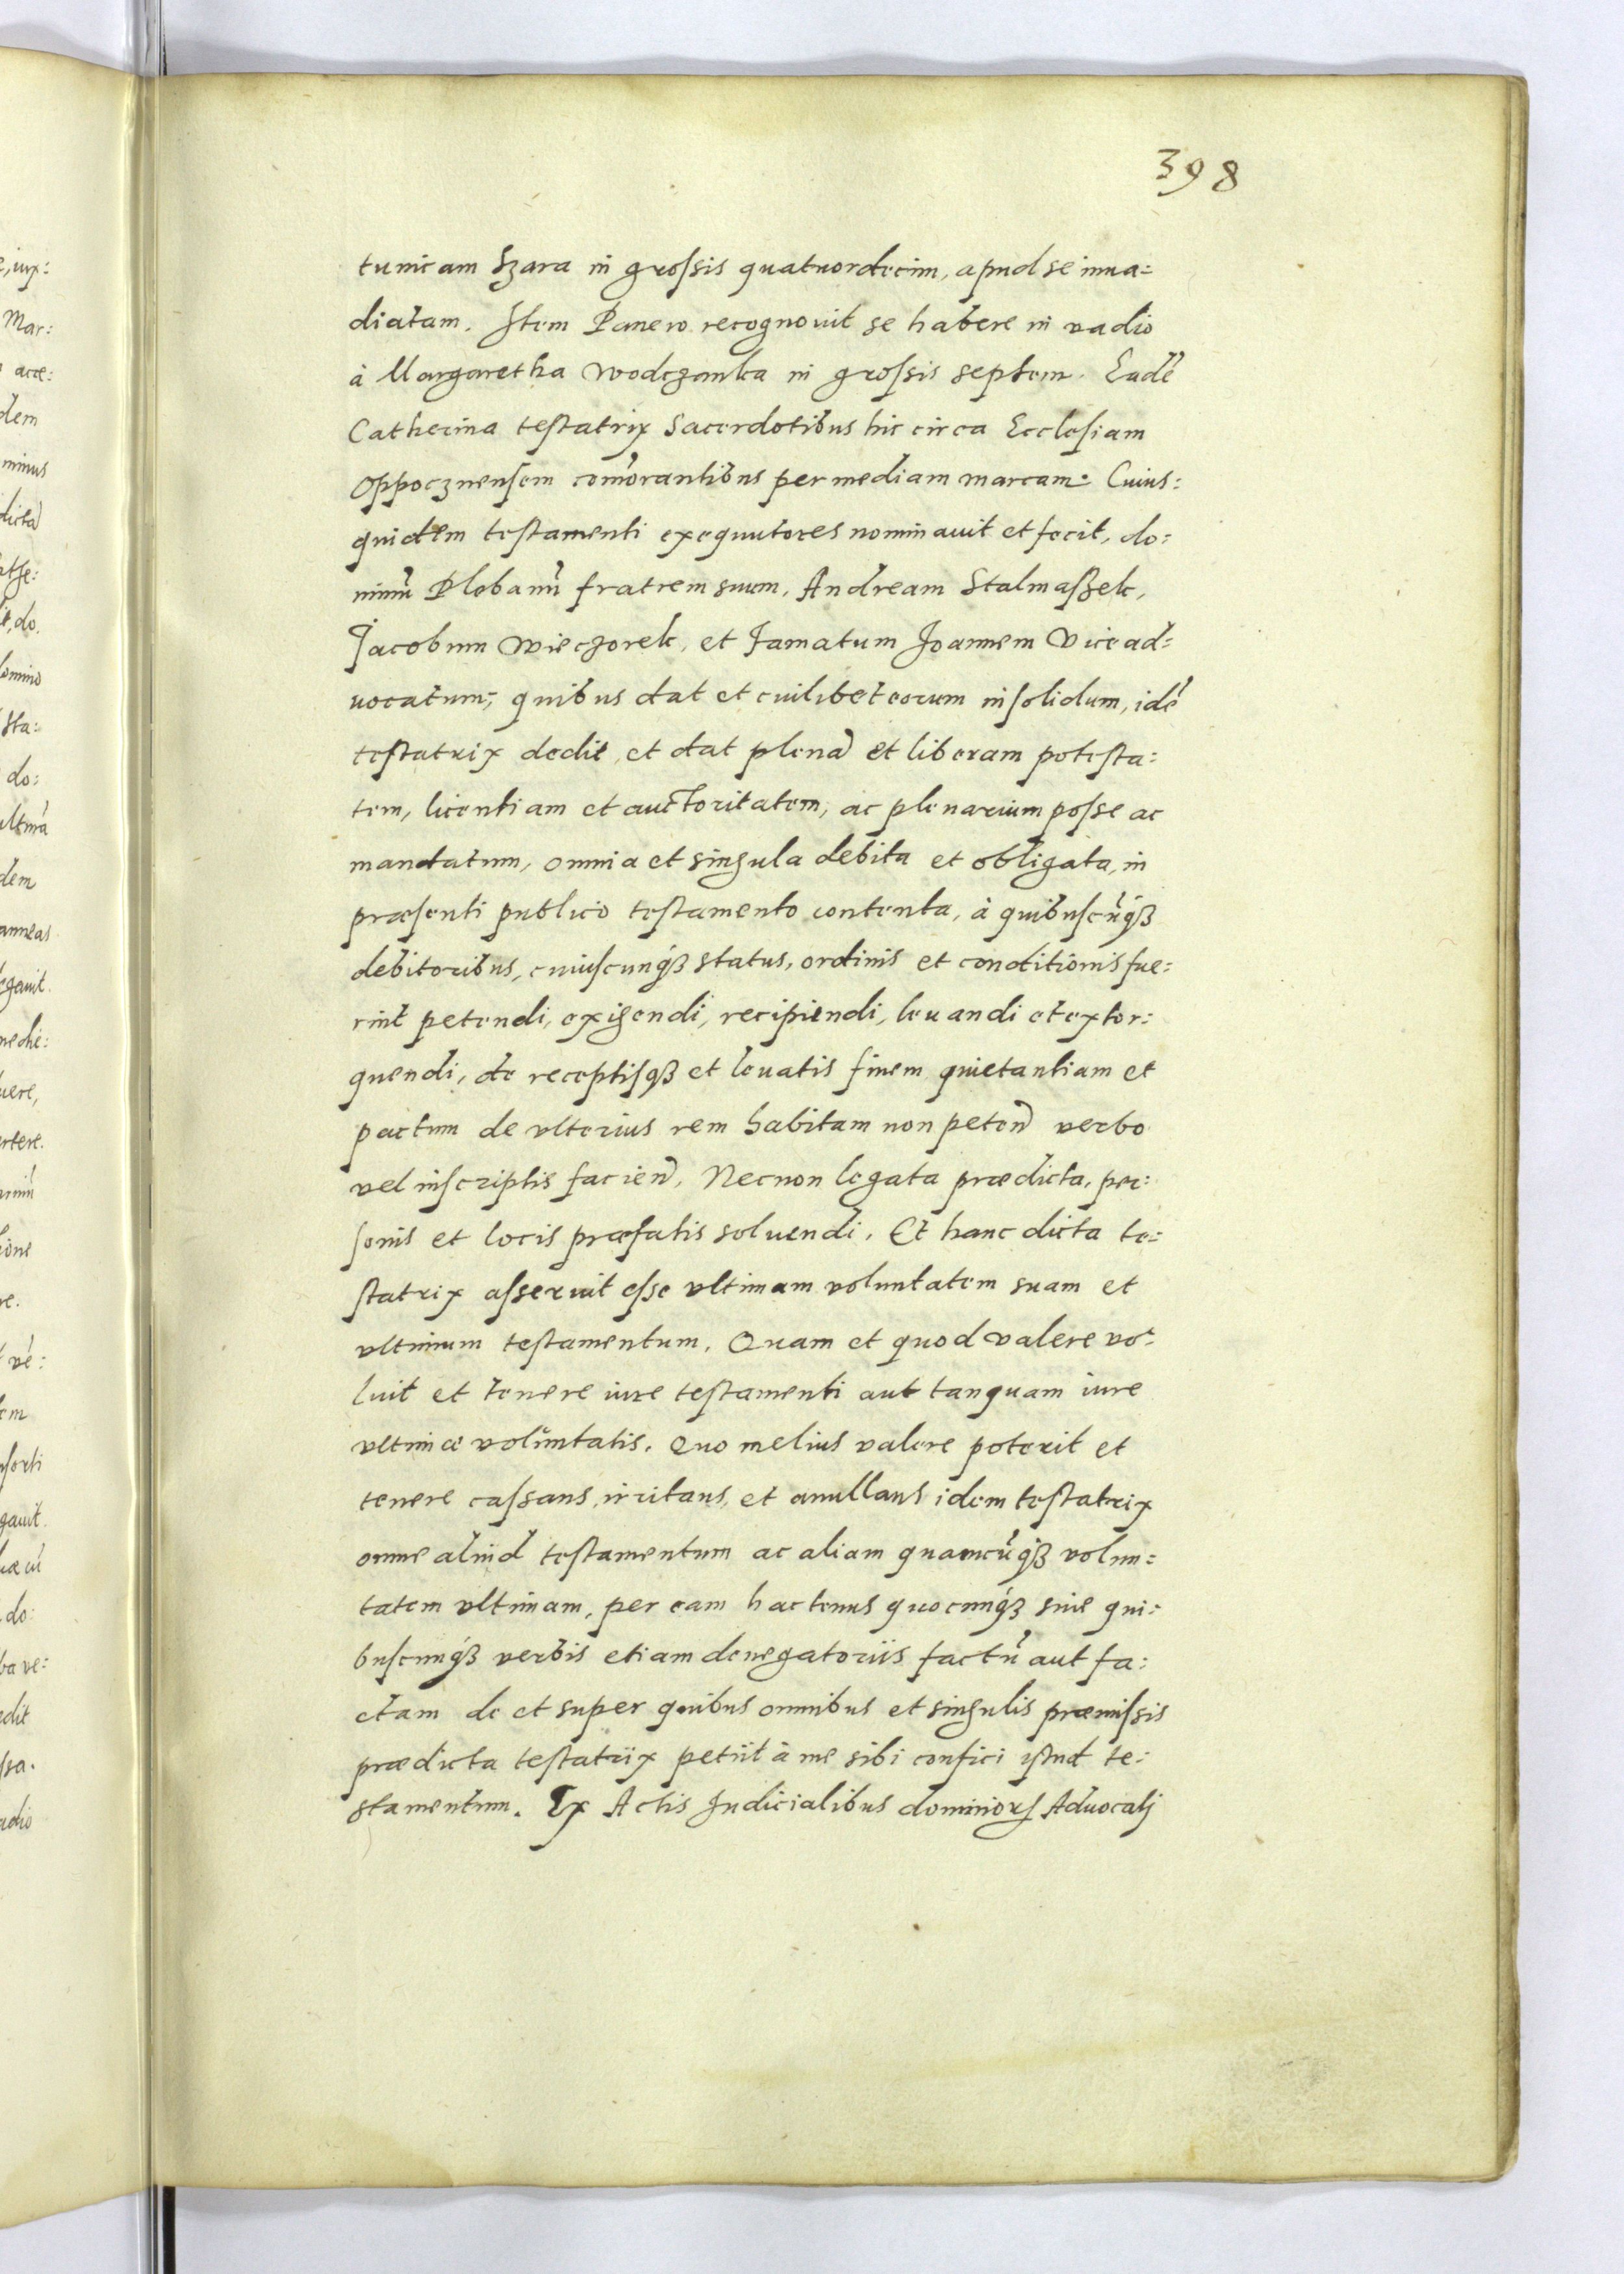 398
tunicam Szara in grossis quatuordecim, apud se inua=
diatam. Item Panew recognouit se habere in vadio
à Margaretha Wodczanka in grossis septem. Eadē
Catherina testatrix Sacerdotibus hic circa Ecclesiam
Oppocznensem com̄orantibus per mediam marcam. Cuius=
quidem testamenti exequutores nominauit et fecit, do=
minū Plebanū fratrem suum, Andream Stalmaszek,
Jacobum Wieczorek, et Famatum Joannem Vicead=
uocatum; quibus dat et cuilibet eorum insolidum, idē
testatrix dedit, et dat plenā et liberam potesta=
tem, licentiam et auctoritatem, ac plenarium posse ac
mandatum, omnia et singula debita et obligata, in
præsenti publico testamento contenta, à quibuscūqꝫ
debitoribus, cuiuscunqꝫ status, ordinis et conditionis fue=
rint petendi, exigendi, recipiendi, leuandi et extor=
quendi, de receptisqꝫ et leuatis finem quietantiam et
pactum de vlterius rem habitam non peteñ verbo
vel inscriptis facieñ, Necnon legata prædicta, per=
sonis et locis præfatis soluendi. Et hanc dicta te=
statrix asseruit esse vltimam voluntatem suam et
vltimum testamentum. Quam et quod valere vo=
luit et tenere iure testamenti aut tanquam iure
vltimæ voluntatis. Quo melius valere poterit et
tenere cassans, irritans, et anullans idem testatrix
omne aliud testamentum ac aliam quamcūqꝫ volun=
tatem vltimam, per eam hactenus quocunqꝫ siue qui=
buscunqꝫ verbis etiam denegatoriis factū aut fa=
ctam de et super quibus omnibus et singulis præmissis
prædicta testatrix petiit à me sibi confici istud te=
stamentum. Ex Actis Judicialibus dominoꝝ Aduocatj